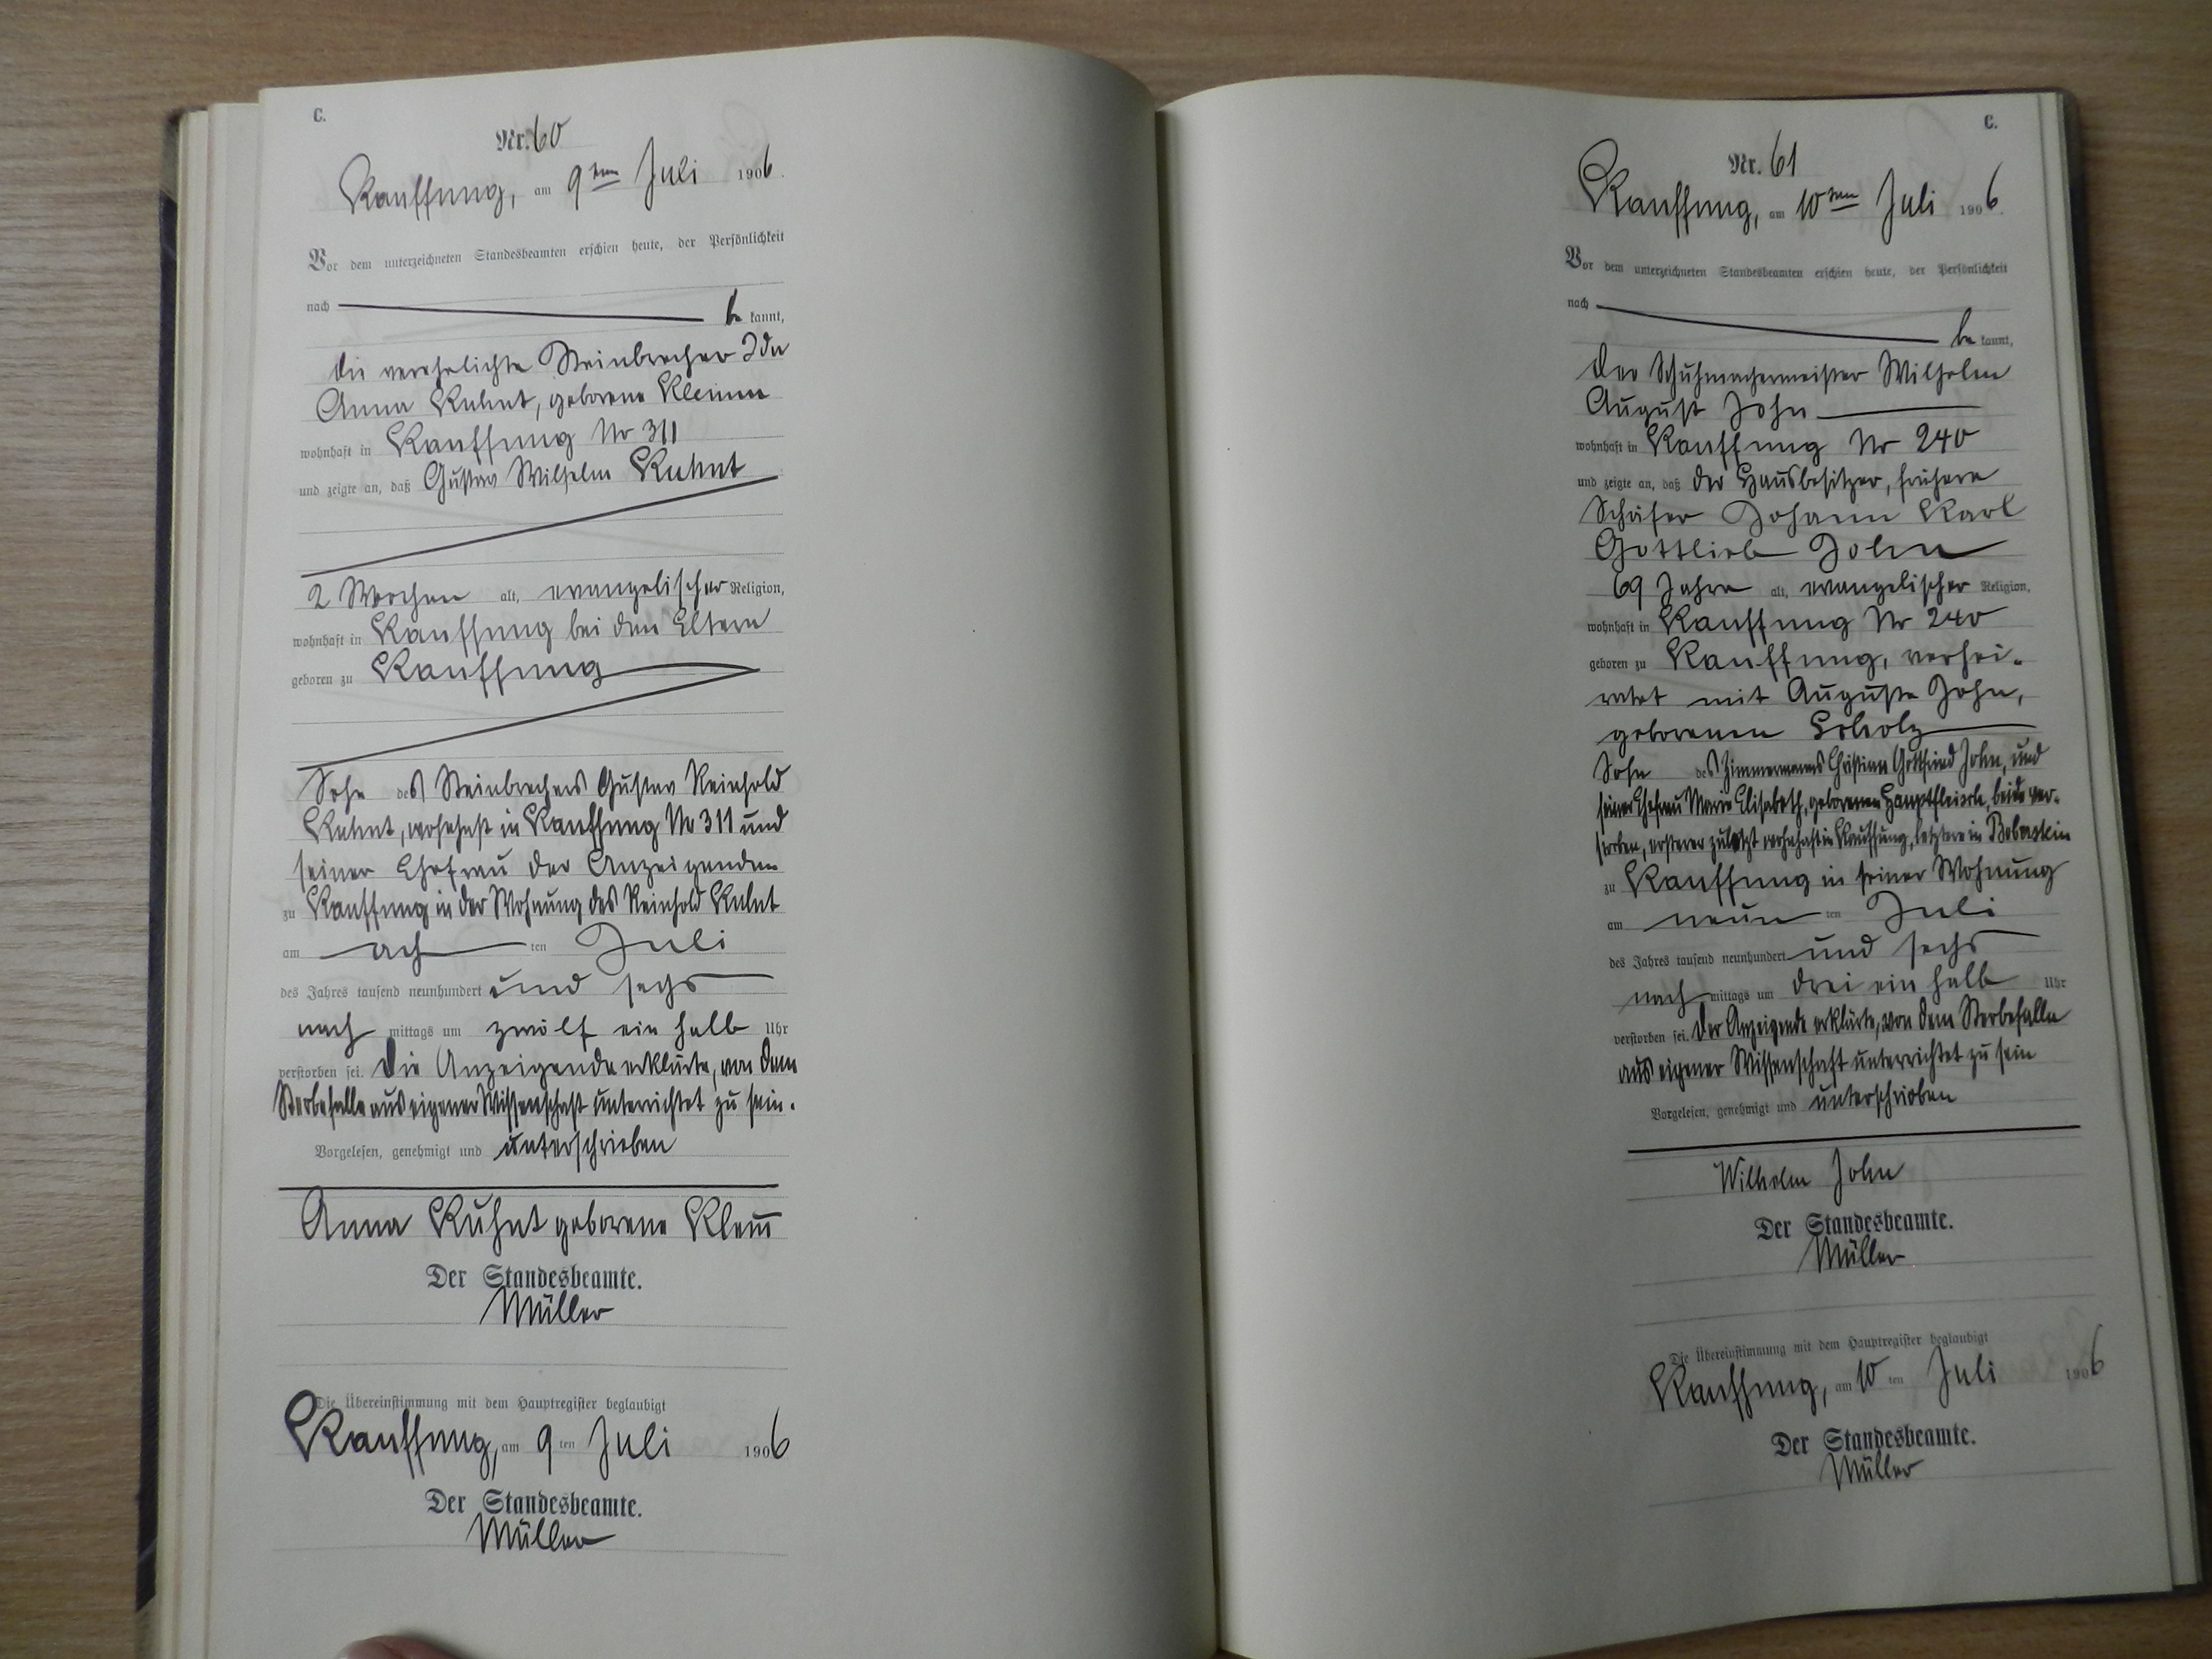 C.
Nr. 60
Kauffung, am 9ten Juli 1906.
Vor dem unterzeichneten Standesbeamten erschien heute, der Persönlichkeit
nach be kannt,
die verehelichte Steinbrecher Ida
Anna Kuhnt, geborene Klemm
wohnhaft in Kauffung Nr 311
und zeigte an, daß Gustav Wilhelm Kuhnt
2 Wochen alt, evangelischer Religion,
wohnhaft in Kauffung bei den Eltern
geboren zu Kauffung
Sohn des Steinbrechers Gustav Reinhold
Kuhnt, wohnhaft in Kauffung Nr 311 und
seiner Ehefrau der Anzeigenden
zu Kauffung in der Wohnung des Reinhold Kuhnt
am ach ten Juli
des Jahres tausend neunhundert und sechs
nach mittags um zwölf ein halb Uhr
verstorben sei. Die Anzeigende erklärte, von dem
Sterbefalle aus eigener Wissenschaft unterrichtet zu sein.
Vorgelesen, genehmigt und unterschrieben
Anna Kuhnt geborene Klem̅
Der Standesbeamte.
Müller
Die Übereinstimmung mit dem Hauptregister beglaubigt
Kauffung, am 9 ten Juli 1906
Der Standesbeamte.
Müller
C.
Nr. 61
Kauffung, am 10ten Juli 1906.
Vor dem unterzeichneten Standesbeamten erschien heute, der Persönlichkeit
nach be kannt,
der Schuhmachermeister Wilhelm
August John
wohnhaft in Kauffung Nr 240
und zeigte an, daß der Hausbesitzer, frühere
Schäfer Johann Karl
Gottlieb John
69 Jahre alt, evangelischer Religion,
wohnhaft in Kauffung Nr 240
geboren zu Kauffung, verhei-
ratet mit Auguste John,
geborenen Scholz
Sohn des Zimmermanns Christian Gottfried John, und
seiner Ehefrau Marie Elisabeth, geborenen Hauptfleisch, beide ver-
storben, ersterer zuletzt wohnhaft in Kauffung, letztere in Boberstein
zu Kauffung in seiner Wohnung
am neun ten Juli
des Jahres tausend neunhundert und sechs
nach mittags um drei ein halb Uhr
verstorben sei. Der Anzeigende erklärte, von dem Sterbefalle
aus eigener Wissenschaft unterrichtet zu sein
Vorgelesen, genehmigt und unterschrieben
Wilhelm John
Der Standesbeamte.
Müller
Die Übereinstimmung mit dem Hauptregister beglaubigt
Kauffung, am 10 ten Juli 1906
Der Standesbeamte.
Müller